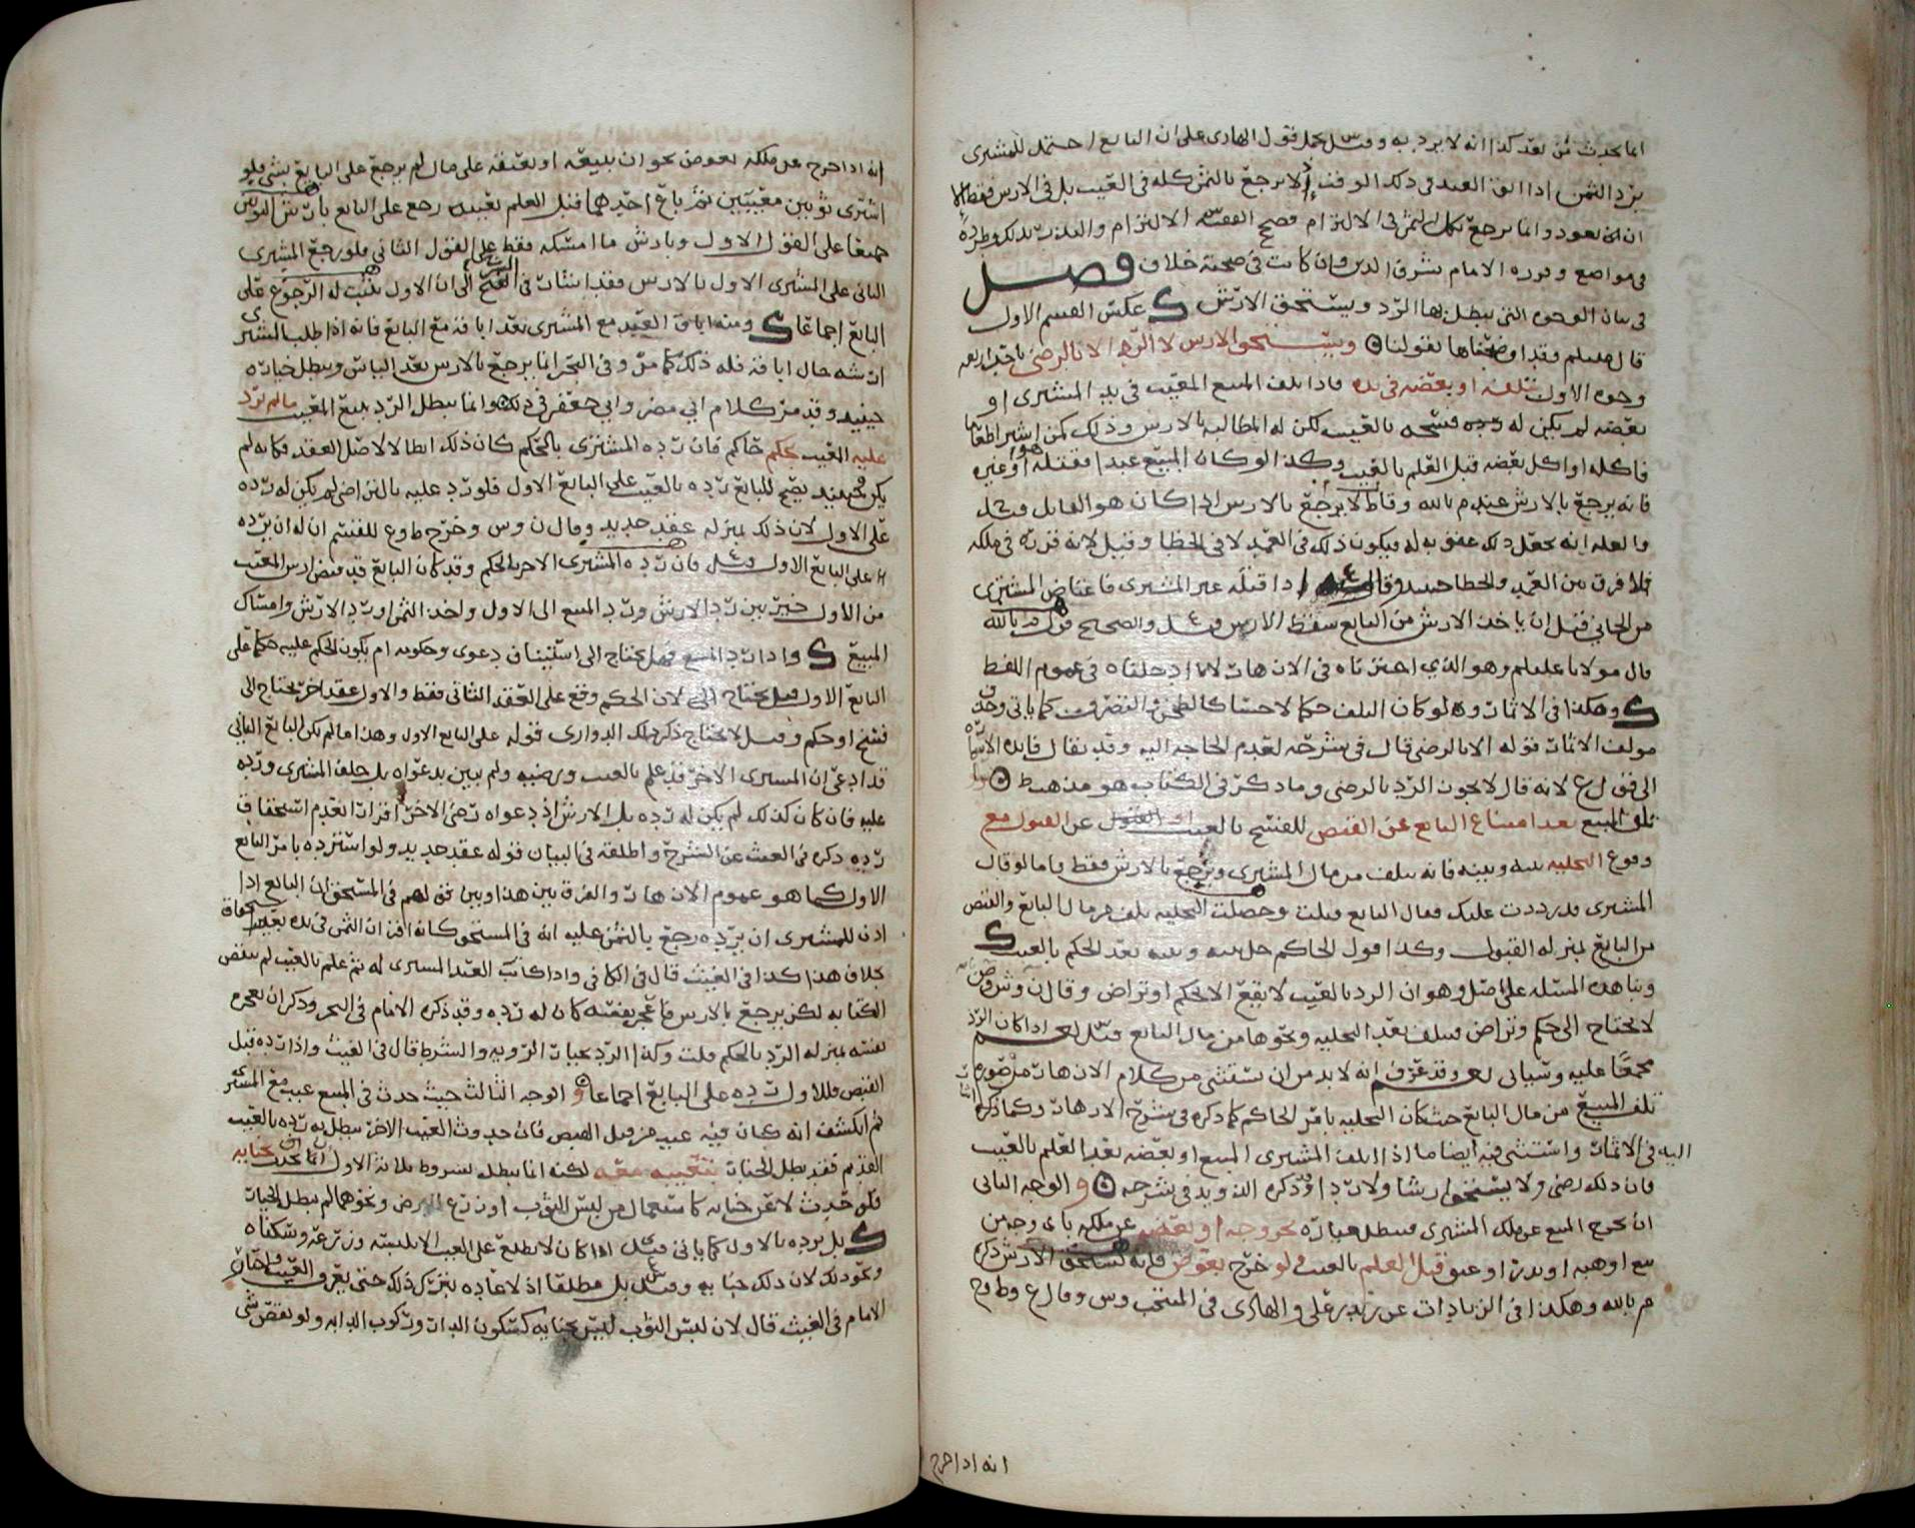 اما يحدث من بعد كذا انه لا يرد به وقيل يحمل قول الهادي على ان البايع احتمل للمشتري
برد الثمن اذا ابق العبد في ذلك الوقت اذ لا يرجع بالثمن كله في العيب بل في الارش فقط الا
ان يعود وانما يرجع بكل الثمن في الالتزام فصح
في مواضع وقرره الامام شرف الدين وان كانت في صحته خلاف فصل
في بيان الوجوه التي يبطل بها الرد ويستحق الارش ك عكس القسم الاول
قال عليلم وقد اوضحناها بقولنا ويستحق الارش لا الرد الا بالرضى باحد اربعه
وجوه الاول بتلفه او بعضه في يده فاذا تلف المبيع المعيب في يد المشتري او
بعضه لم يكن له رده وفسخه بالعيب لكن له المطالبه بالارش وذلك كمن اشترا طعاما
فاكله او اكل بعضه قبل العلم بالعيب وكذا لو كان المبيع عبدا فقتله هو او غيره
فانه يرجع بالارش عند م بالله وقا ط لا يرجع بالارش اذا كان هو القاتل وقيل ح
والعله انه يجعل ذلك عقوبه له فيكون ذلك في العمد لا في الخطا وقيل لانه قربه في ملكه
فلا فرق بين العمد والخطا حينيذ وقال اذا قتله غير المشتري فاعتاض المشتري
من الجاني قبل ان ياخذ الارش من البايع سقط الارش وقيل ع والصحيح قول م بالله
قال مولانا عليلم وهو الذي اخترناه في الازهار لانا ادخلناه في عموم اللفظ
ك وهكذا في الاثمار وه لو كان التلف حكما لا حسا كالطحن والتصرف كما ياتي وحذف
مولف الاثمار قوله الا بالرضى قال في شرحه لعدم الحاجه اليه وقد يقال فايده الاشاره
الى قول ع لانه قال لا يجوز الرد بالرضى وما ذكر في الكتاب هو مذهب ط
تلف المبيع بعد امتناع البايع عن القبض للفسخ بالعيب او القبول عن القبول مع
وقوع التخليه بينه وبينه فانه يتلف من مال المشتري ويرجع بالارش فقط واما لو قال
المشتري قد رددت عليك فقال البايع قبلت وحصلت التخليه تلف من مال البايع والقبض
من البايع بمنزله القبول وكذا قول الحاكم خل بينه وبينه بعد الحكم بالعيب ك
وبنا هذه المسئله على اصل وهو ان الرد بالعيب لا يقع الا بحكم او تراض وقال ن وش وص
لا يحتاج الى حكم وتراض فيتلف بعد التخليه ونحوها من مال البايع اذا كان الرد
مجمعا عليه وسياتي وقد عرف انه لا بد من ان يستثنى من كلام الازهار من صوره
تلف المبيع من مال البايع حيث كان التخليه بامر الحاكم كما ذكره في شرح الازهار وكما ذكره
اليه في الاثمار واستثنى فيه ايضا ما اذا اتلف المشتري المبيع او بعضه بعد العلم بالعيب
فان ذلك رضى ولا يستحق ارشا ولا رد ا وقد ذكره الدويد في شرحه و الوجه الثاني
ان يخرج المبيع عن ملك المشتري فيبطل خياره بخروجه او بعضه عن ملكه باي وجه من
بيع او هبه او نذر او عتق قبل العلم بالعيب ولو خرج بعوض فانه يستحق الارش ذكره
م بالله وهكذا في الزيادات عن زيد بن علي والهادي في المنتخب وس وقال ع وط وح
انه اذا خرج
انه اذا خرج عن ملكه بعوض نحو ان يبيعه او يعتقه على مال لم يرجع على البايع بشي فلو
اشترى ثوبين معيبين ثم باع احدهما قبل العلم بعيبه رجع على البايع بارش الثوبين
جميعا على القول الاول وبارش ما امسكه فقط على القول الثاني فلو رجع المشتري
الثاني على المشتري الاول بالارش فقد اشار في الى ان الاول يثبت له الرجوع على
البايع اجماعا ك ومنه اباق العبد مع المشتري بعد اباقه مع البايع فانه اذا طلب المشتري
ارشه حال اباقه فله ذلك كما مر وفي البحر انما يرجع بالارش بعد الياس ويبطل خياره
حينيذ وقد مر كلام ابي مضر وابي جعفر في ذلك وانما يبطل الرد ببيع المعيب ما لم يرد
عليه العيب بحكم حاكم فان رده المشتري بالحكم كان ذلك ابطالا لاصل العقد فكانه لم
يكن فحينيذ يصح للبايع رده بالعيب على البايع الاول فلو رد عليه بالتراضي لم يكن له رده
على الاول لان ذلك بمنزله عقد جديد وقال ن وس وخرج ط وع للقسم ان له ان يرده
على البايع الاول فان رده المشتري الاخر بالحكم وقد كان البايع قد قبض ارش العيب
من الاول خير بين رد الارش ورد المبيع الى الاول واخذ الثمن او رد الارش وامساك
المبيع ك واذا رد المبيع فهل يحتاج الى استيناف دعوى وحكومه ام يكون الحكم عليه حكما على
البايع الاول قيل يحتاج لان الحكم وقع على العقد الثاني فقط والاول عقد اخر يحتاج الى
فسخ او حكم وقيل لا يحتاج ذكره الدواري قوله على البايع الاول وهذا ما لم يكن البايع الثاني
قد ادعى ان المشتري الاخر قد علم بالعيب ورضيه ولم يبين بدعواه بل حلف المشتري ورده
عليه فان كان كذلك لم يكن له رده بل الارش اذ دعواه رضى الاخر اقرار العدم استحقاق
رده ذكره في الغيث عن الشرح واطلقه في البيان قوله عقد جديد ولو اشترده بامر البايع
الاول كما هو عموم الازهار والفرق بين هذا وبين قولهم في المستحق ان البايع اذا
اذن للمشتري ان يرده رجع بالثمن عليه انه في المستحق كانه اقر ان الثمن في يده بغير استحقاق
بخلاف هذا كذا في الغيث قال في الكافي واذا كاتب العبد المشتري له ثم علم بالعيب لم ينقض
الكتابه لكن يرجع بالارش فان عجز نفسه كان له رده وقد ذكره الامام في البحر وذكر ان عجزه
نفسه بمنزله الرد بالحكم قلت وكذا الرد بخيار الرويه والشرط قال في الغيث واذا رده قبل
القبض فللاول رده على البايع اجماعا و الوجه الثالث حيث حدث في المبيع عيب مع المشتري
ثم انكشف انه كان فيه عيب من قبل القبض فان حدوث العيب الاخر يبطل به رده بالعيب
القديم فقد بطل الخيار بتعييبه معه لكنه انما يبطل بشروط ثلاثه الاول ان يحدث بجنايه
فلو حدث لا عن جنايه كاستعمال من لبس الثوب او زرع الارض ونحوهما لم يبطل الخيار
ك بل يرده بالاول كما ياتي قيل اذا كان لا يطلع على العيب الا بلبسه وزرعه وسكناه
ونحو ذلك لان ذلك جنايه وقيل بل مطلقا اذ لا عاده بترك ذلك حتى يعرف العيب واختاره
الامام في الغيث قال لان لبس الثوب ليس بجنايه كسكون الدار وركوب الدابه ولو نقص شي